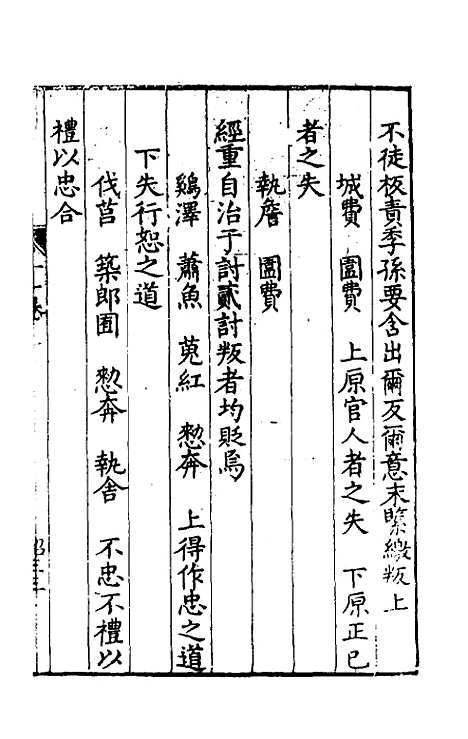 不徒板責季孫要含出爾反爾意末略繳叛上
城費　圍費　上原官人者之失　下原正已
者之失
執詹　圍費
經重自治于討貳討叛者均貶焉
鷄澤　蕭魚　蒐紅　憗奔　上得作忠之道
下失行恕之道
伐莒　築郎囿　憗奔　執舍　不忠不禮以
禮以忠合